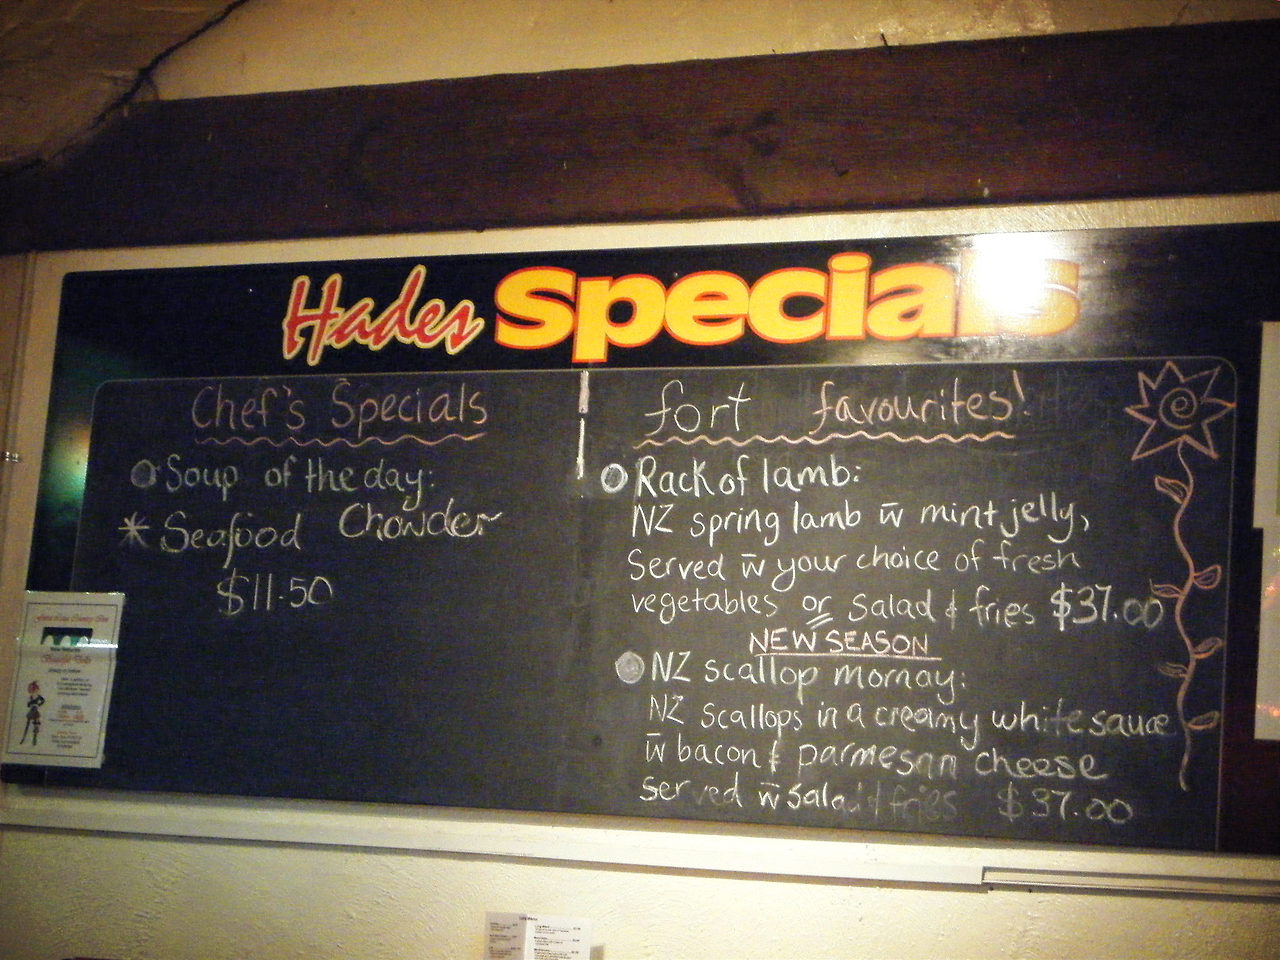 Hades Specials
Chef's Specials
Soup of the day:
* Seafood Chowder
$11.50
fort favourites!
Rack of lamb:
NZ spring lamb w̄ mint jelly,
Served w̄ your choice of fresh
vegetables or Salad & fries $37.00
NEW SEASON
NZ scallop mornay:
NZ scallops in a creamy white sauce
w̄ bacon & parmesan cheese
served w̄ salad & fries $37.00